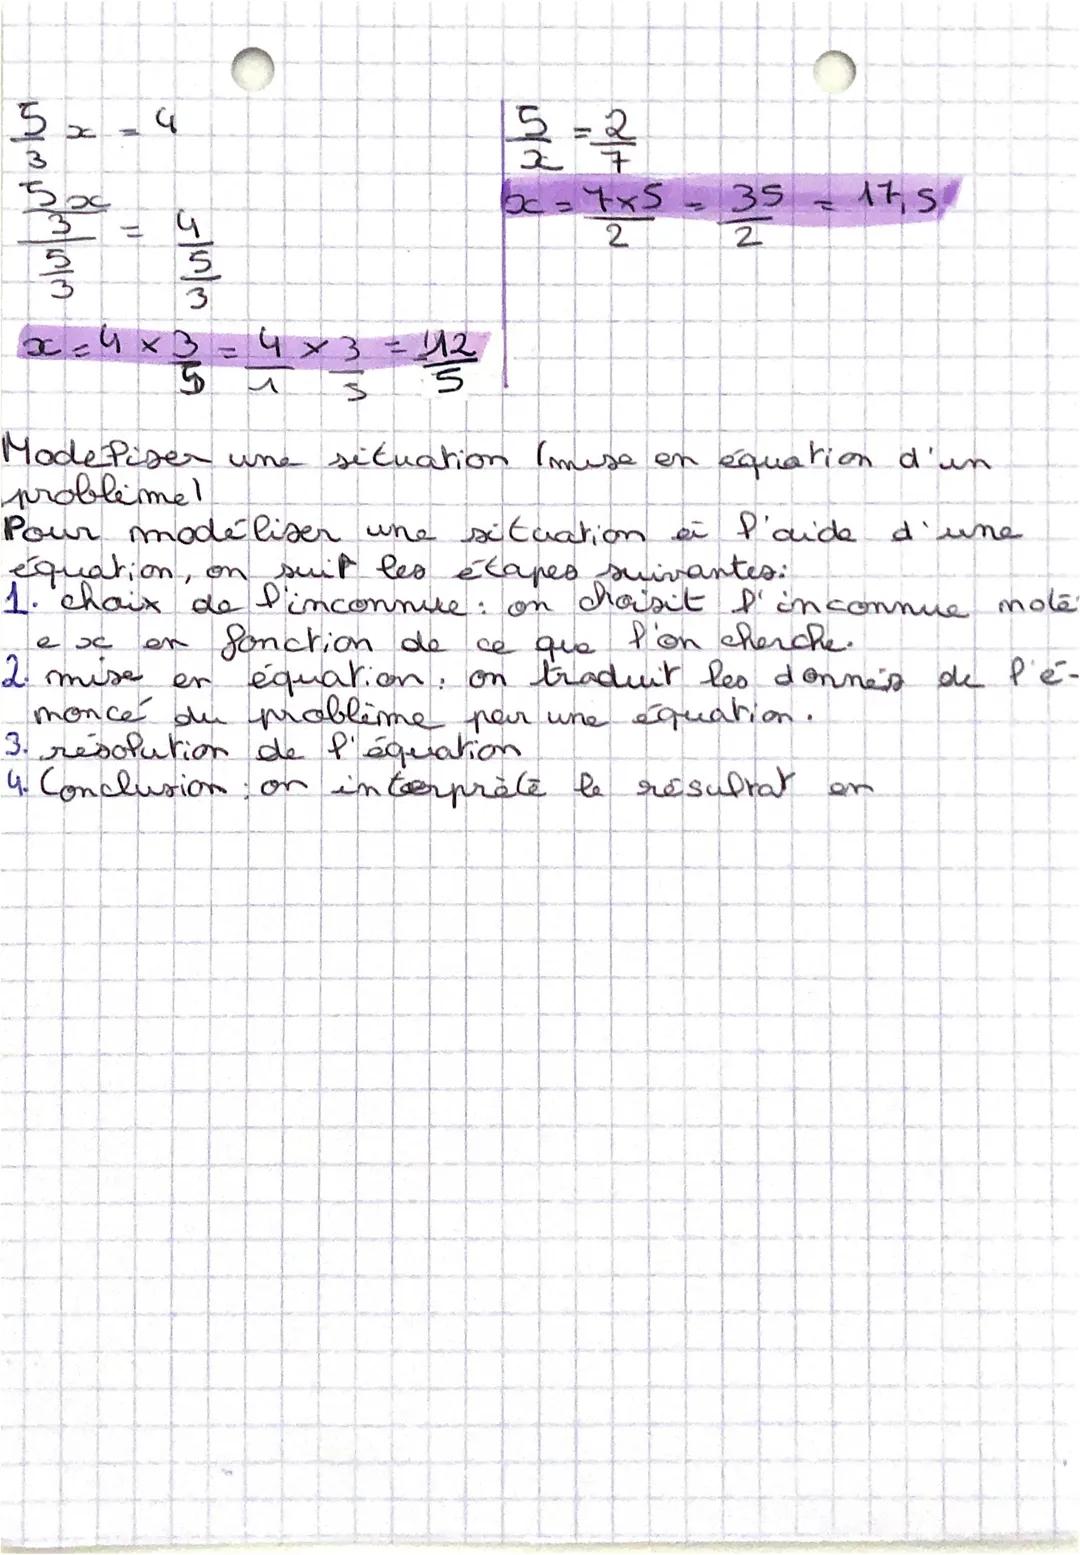 5/3 x = 4
(5x/3)/(5/3) = 4/(5/3)
x = 4 × 3/5 = 4/1 × 3/5 = 12/5
5/x = 2/7
x = 7×5/2 = 35/2 = 17,5
Modeliser une situation (mise en équation d'un
problème)
Pour modéliser une situation à l'aide d'une
équation, on suit les étapes suivantes:
1. choix de l'inconnue: on choisit l'inconnue noté
e x en fonction de ce que l'on cherche.
2. mise en équation: on traduit les donnés de l'é-
noncé du problème par une équation.
3. résolution de l'équation
4. Conclusion: on interprète le résultat en